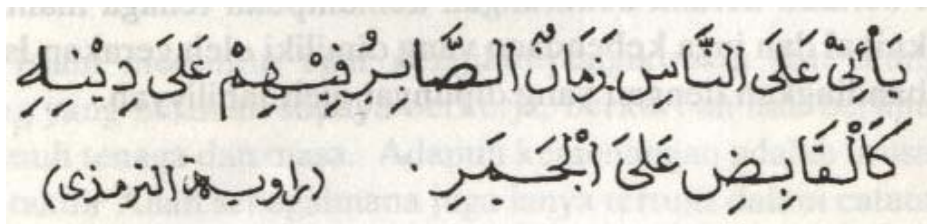 يَأْتِيْ عَلَى النَّاسِ زَمَانٌ الصَّابِرُ فِيْهِمْ عَلَى دِيْنِهِ
كَالْقَابِضِ عَلَى الْجَمَرِ . (راويه الترمذى)